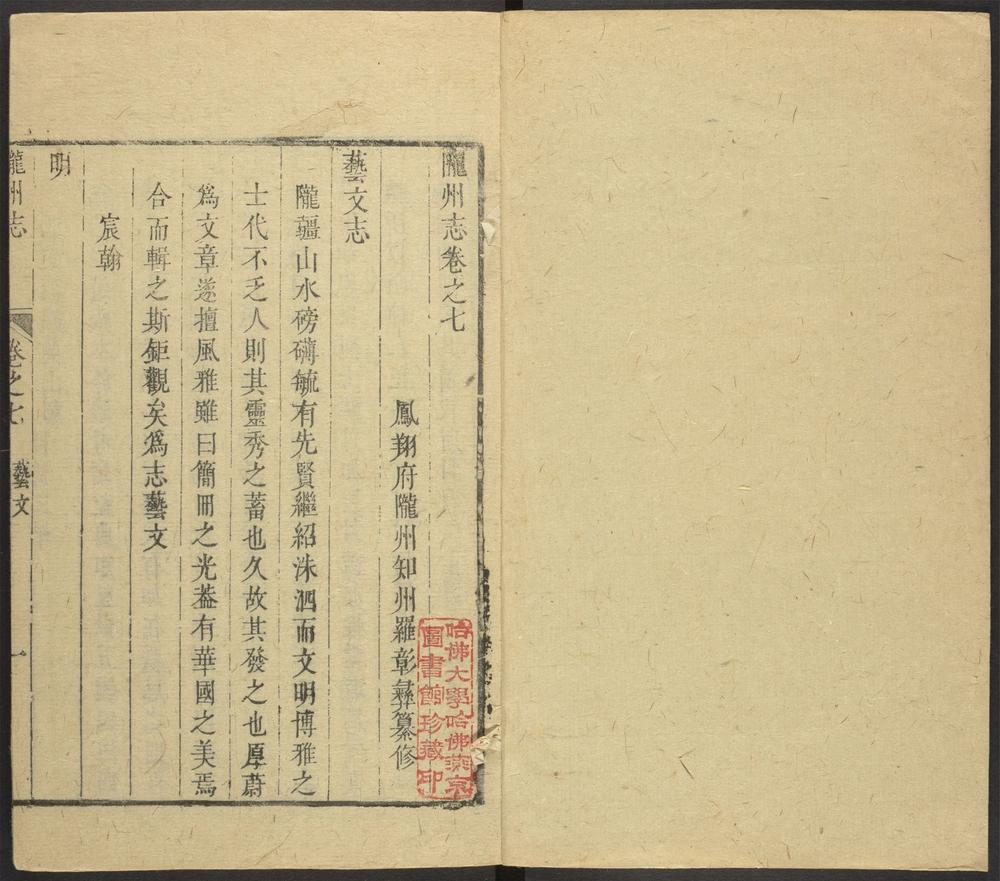 隴州志卷之七
鳳翔府隴州知州羅彰彝纂修
藝文志
隴疆山水磅礴毓有先賢繼紹洙泗而文明博雅之
士代不乏人則其靈秀之蓄也久故其發之也厚蔚
爲文章遂擅風雅雖曰簡冊之光葢有華國之美焉
合而輯之斯鉅觀矣爲志藝文
宸翰
明
隴州志
卷之七
藝文
一
哈佛大學哈佛燕京
圖書館珍藏印